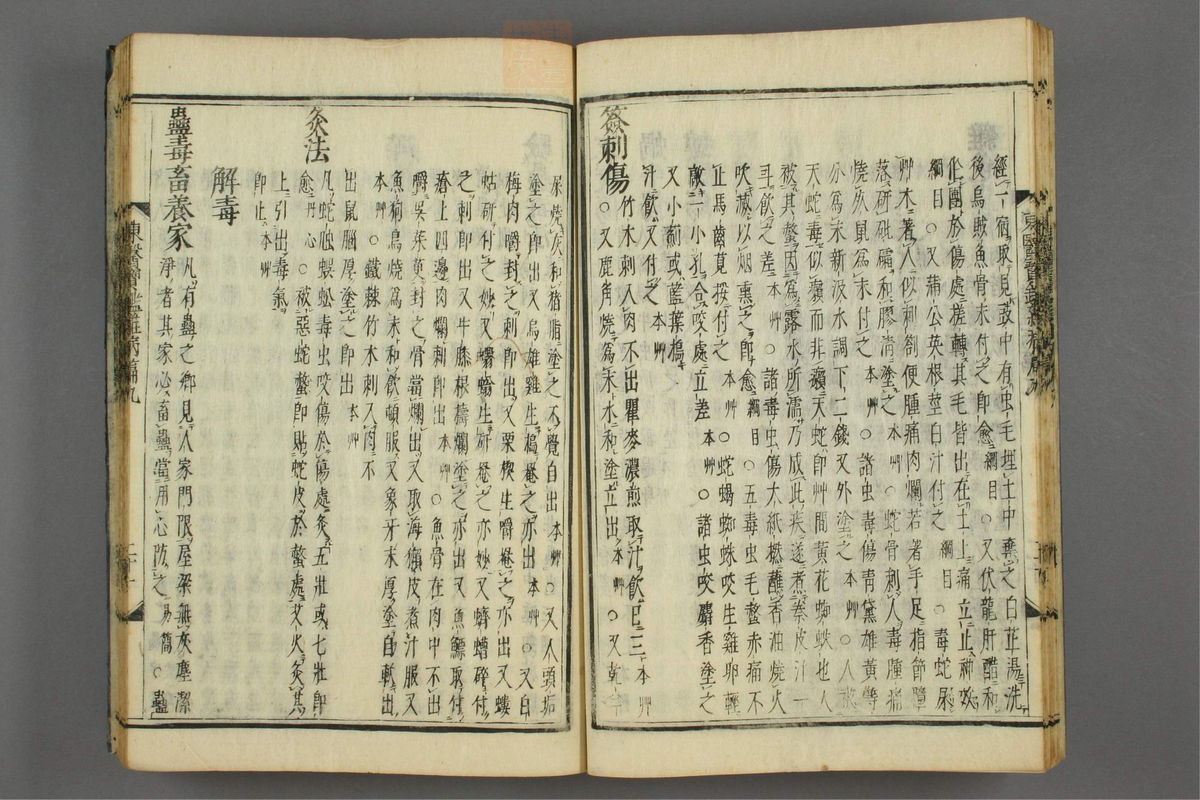 經一宿取見豉中有虫毛埋土中棄之白芷湯洗
後烏賊魚骨末付之即愈 綱目 ○又伏龍肝醋和
作團於傷處搓轉其毛皆出在土上痛立止神妙
綱目 ○又蒲公英根莖白汁付之 綱目 ○毒蛇尿
艸木著人似刺劄便腫痛肉爛若著手足指節墮
落研砒霜和膠清塗之 本艸 ○蛇骨刺人毒腫痛
燒死鼠爲末付之 本艸 ○諸虫毒傷靑黛雄黃等
分爲末新汲水調下二錢又外塗之 本艸 ○人被
天蛇毒似癩而非癩天蛇即艸間黃花蜘蛛也人
被其螫因爲露水所濡乃成此疾遂煮秦皮汁一
斗飮之差 本艸 ○諸毒虫傷大紙撚蘸香油燒火
吹滅以烟熏之即愈 綱目 ○五毒虫毛螫赤痛不
止馬齒莧挼付之 本艸 ○蛇蝎蜘蛛咬生雞卵輕
敲一小孔合咬處立差 本艸 ○諸虫咬麝香塗之
又小薊或藍葉搗
汁飮又付之 本艸
簽刺傷 竹木刺入肉不出瞿麥濃煎取汁飮日三 本艸
○又鹿角燒爲末水和塗立出 本艸 ○又乾羊
屎燒灰和猪脂塗之不覺自出 本艸 ○又人頭垢
塗之即出又烏雄雞生搗罨之亦出 本艸 ○又白
梅肉嚼封之刺即出又栗楔生嚼罨之亦出又螻
蛄硏付之妙又蠐螬生硏罨之亦妙又蠐螬碎付
之刺即出又牛膝根擣爛塗之亦出又魚鰾取付
瘡上四邊肉爛刺即出 本艸 ○魚骨在肉中不出
嚼吳茱萸封之骨當爛出又取海獺皮煮汁服又
魚狗鳥燒爲末和飮頓服又象牙末厚塗自軟出
本艸 ○鐵棘竹木刺入肉不
出鼠腦厚塗之即出 本艸
灸法 凡蛇虺蜈蚣毒虫咬傷於傷處灸五壯或七壯即
愈 丹心 ○被惡蛇螫即貼蛇皮於螫處艾火灸其
上引出毒氣
即止 本艸
解毒
蠱毒畜養家 凡有蠱之鄕見人家門限屋梁無灰塵潔
淨者其家必畜蠱當用心防之 易簡 ○蠱